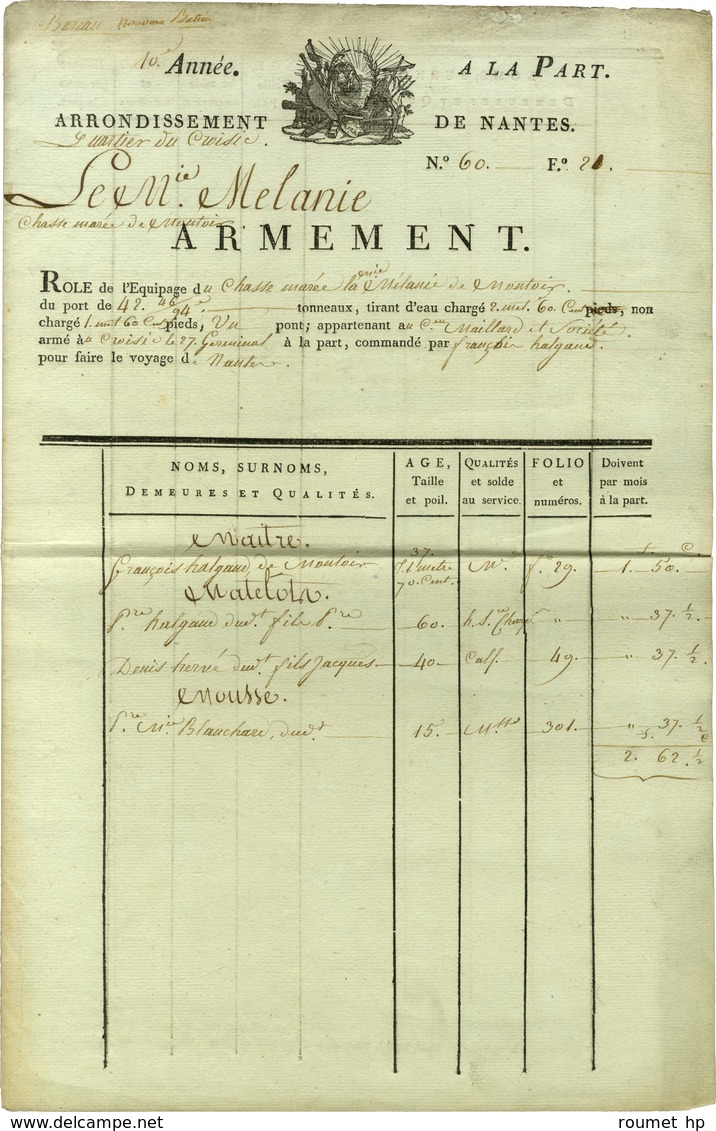 Bureau
10.e Année. A LA PART.
ARRONDISSEMENT DE NANTES.
Quartier du Croisic.
N.º 60. F.º 21.
Le M.ie Melanie
Chasse marée de Montoir
ARMEMENT.
ROLE de l'Equipage du Chasse marée la Mélanie de Montoir.
du port de 42. 46/94.e tonneaux, tirant d'eau chargé 2. met. 60 Cent pieds, non
chargé 1. met 60 Cent pieds, Un pont; appartenant au C.en Maillard et Société
armé au Croisic le 27. Germinal à la part, commandé par françois halgand.
pour faire le voyage de Nantes.
NOMS, SURNOMS, DEMEURES ET QUALITÉS.
AGE, Taille et poil.
QUALITÉS et solde au service.
FOLIO et numéros.
Doivent par mois à la part.
Maitre.
f. c.
37.
François halgand de Montoir T. 1. metre 70. Cent. M.e f.o 29. 1. 50.
Matelots.
P.re halgand dud.t fils P.re 60. h.S. " " 37. ½
Denis hervé dud.t fils Jacques 40. Calf. 49. " 37. ½
Mousse.
P.re M.ie Blanchard, dud.t 15. M.sse 301. " 37. ½
f. c
2. 62. ½
roumet hp